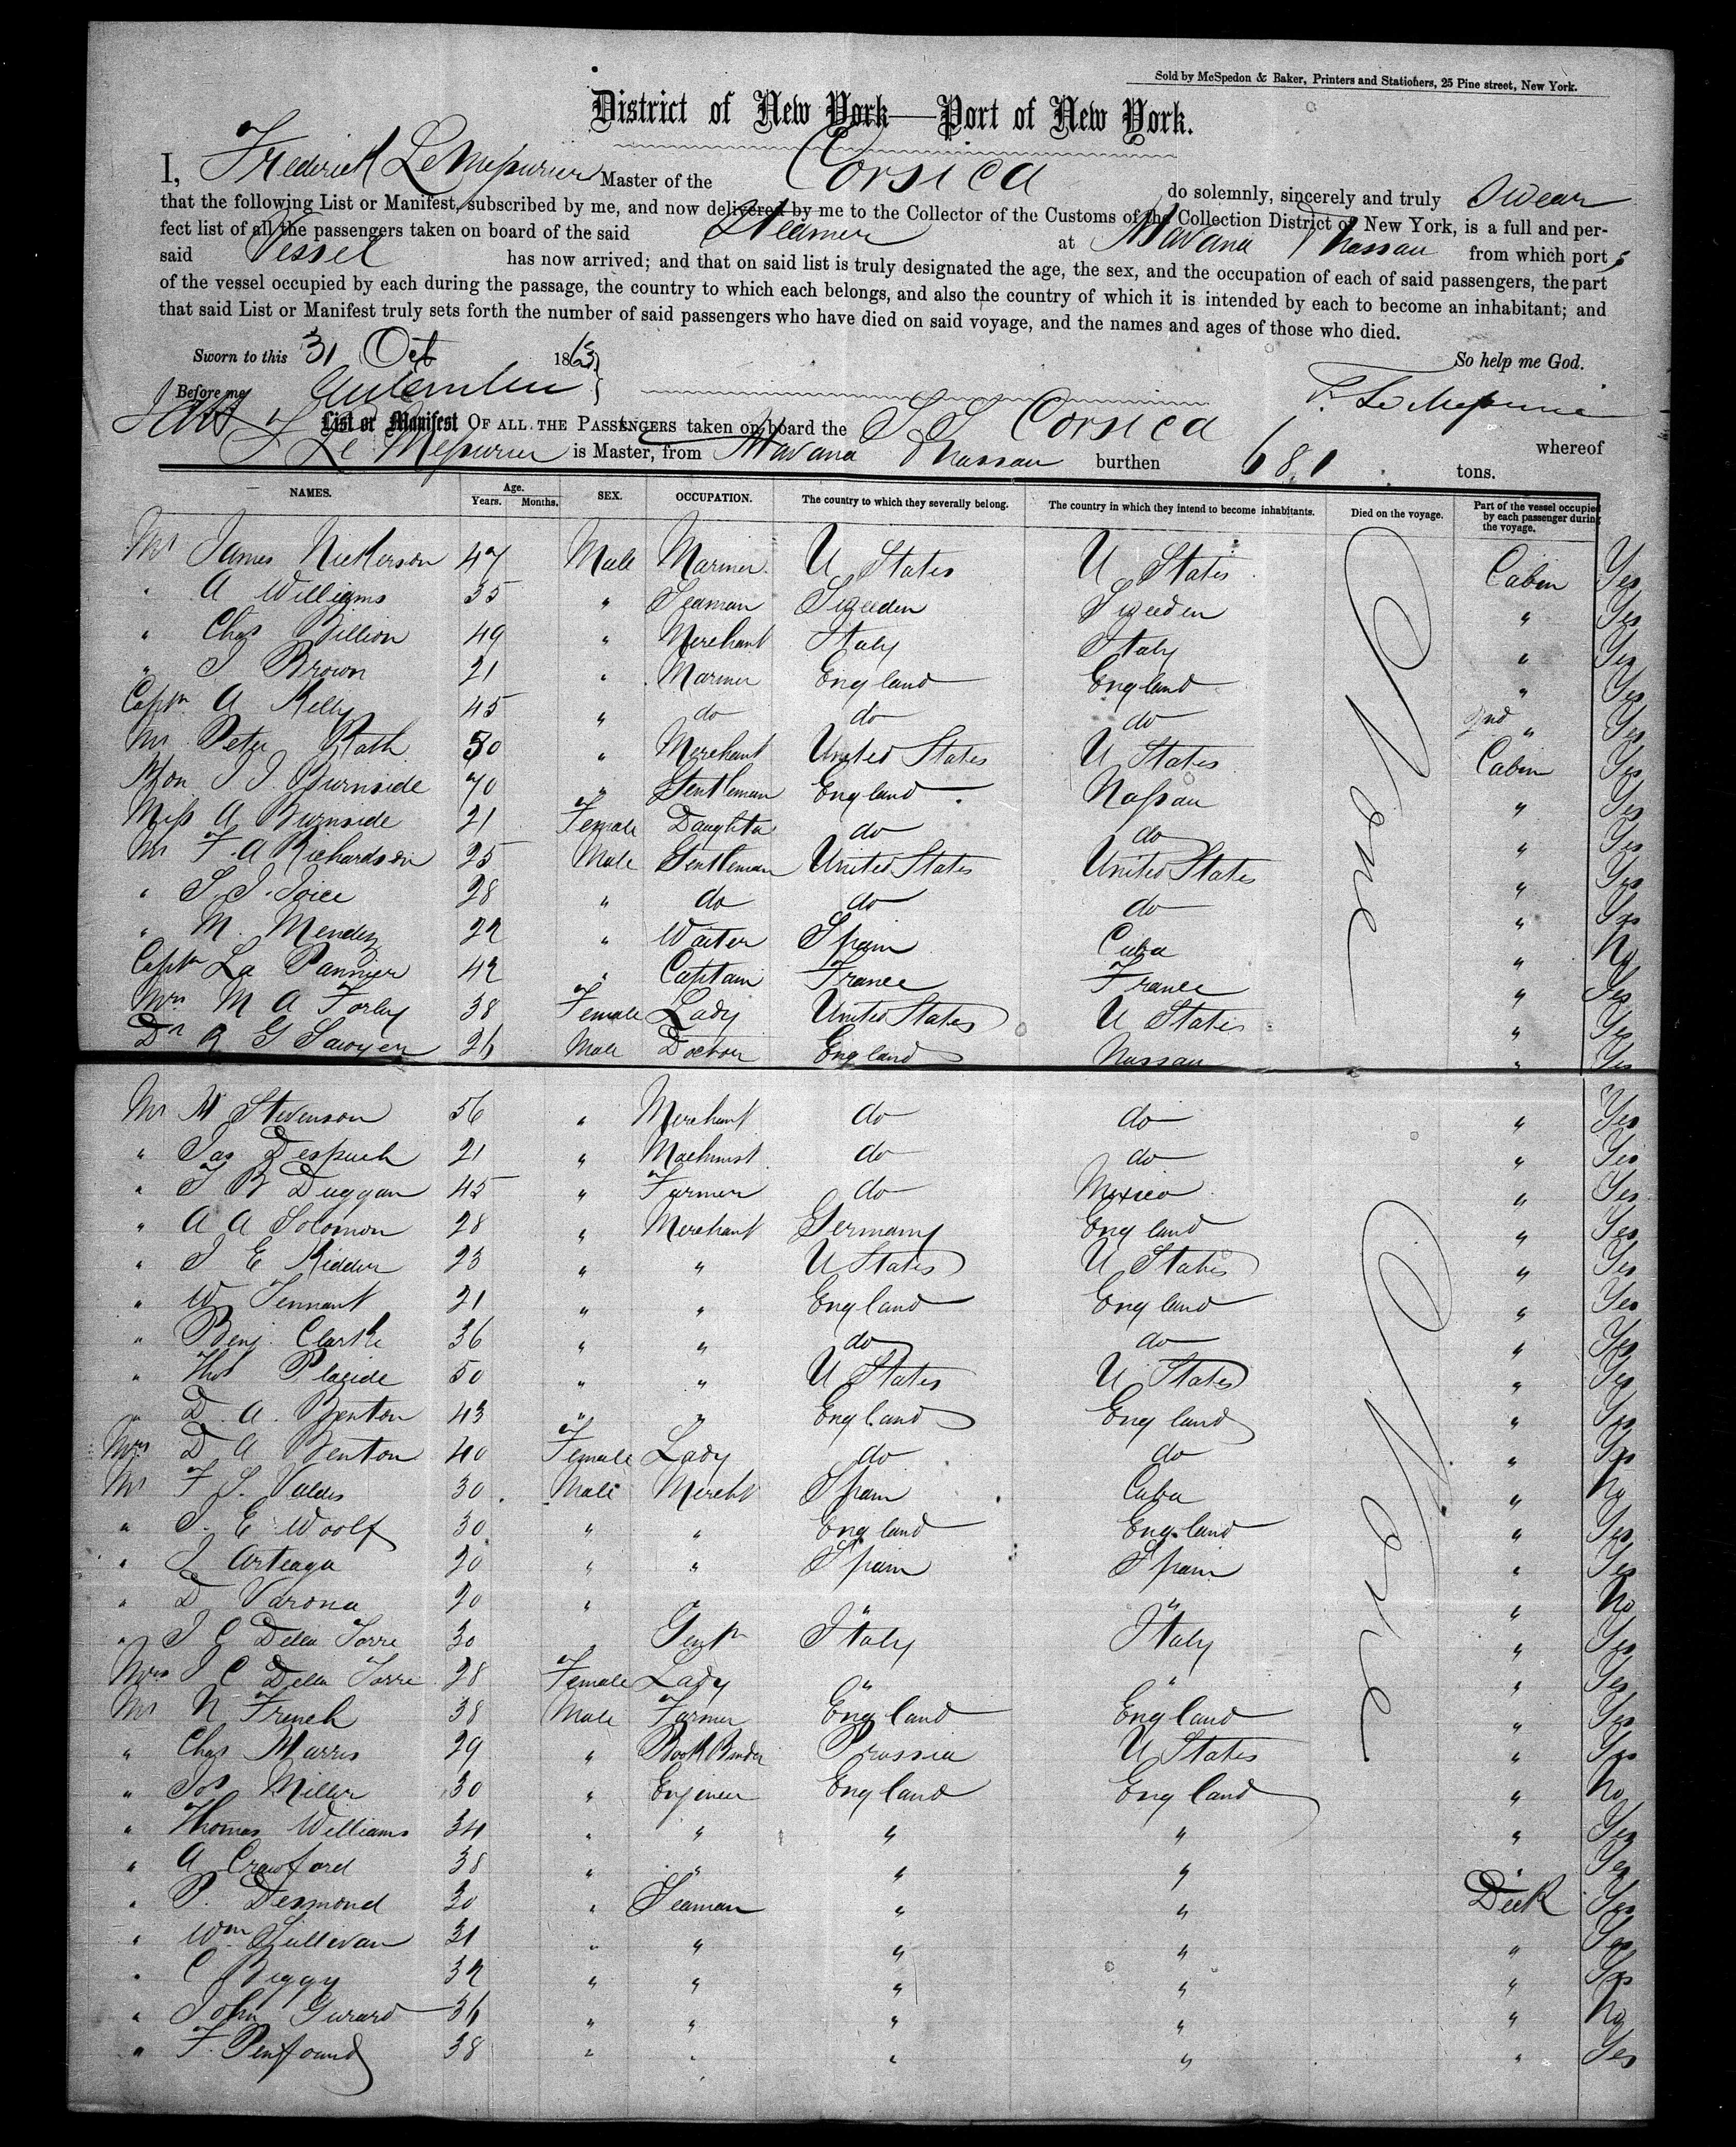 Sold by McSpedon & Baker, Printers and Stationers, 25 Pine street, New York.
District of New York—Port of New York.
I, Frederick Le Mesurier Master of the Corsica do solemnly, sincerely and truly Swear
that the following List or Manifest, subscribed by me, and now delivered by me to the Collector of the Customs of the Collection District of New York, is a full and per-
fect list of all the passengers taken on board of the said Steamer at Havana & Nassau from which port s
said Vessel has now arrived; and that on said list is truly designated the age, the sex, and the occupation of each of said passengers, the part
of the vessel occupied by each during the passage, the country to which each belongs, and also the country of which it is intended by each to become an inhabitant; and
that said List or Manifest truly sets forth the number of said passengers who have died on said voyage, and the names and ages of those who died.
Sworn to this 31 Oct 1865 So help me God.
Before me F. Le Mesurier
List or Manifest OF ALL THE PASSENGERS taken on board the S S Corsica whereof
Le Mesurier is Master, from Havana & Nassau burthen 681 tons.
NAMES. Age. Years. Months. SEX. OCCUPATION. The country to which they severally belong. The country in which they intend to become inhabitants. Died on the voyage. Part of the vessel occupied by each passenger during the voyage.
Mr James Nickerson 47 Male Mariner U States U States Cabin Yes
" A Williams 35 " Seaman Sweeden Sweeden " Yes
" Chas Billion 49 " Merchant Italy Italy " Yes
" J Brown 21 " Mariner England England " Yes
Captn A Kelly 45 " do do do 2nd " Yes
Mr Peter Rath 50 " Merchant United States U States Cabin Yes
Hon J J Burnside 70 " Gentleman England Nassau " Yes
Miss A Burnside 21 Female Daughter do do " Yes
Mr F. A Richardson 25 Male Gentleman United States United States " Yes
" S. J. Joice 28 " do do do " Yes
" M. Mendez 22 " Waiter Spain Cuba " No
Captn La Pannier 42 " Captain France France " Yes
Mrs M A Forby 38 Female Lady United States U States " Yes
Dr R G Sawyer 26 Male Doctor England Nassau " Yes
None
Mr M Stevenson 56 " Merchant do do " Yes
" Jas Despuch 21 " Machinist do do " Yes
" J B Duggan 45 " Farmer do Mexico " Yes
" A A Solomon 28 " Merchant Germany England " Yes
" J E Kidder 23 " " U States U States " Yes
" W Tennant 21 " " England England " Yes
" Benj. Clarke 36 " " do do " Yes
" Thos Placide 50 " " U States U States " Yes
" D. A. Benton 43 " " England England " Yes
Mrs D A Benton 40 Female Lady do do " Yes
Mr F S. Valdes 30 Male Mercht Spain Cuba " No
" J. E Woolf 30 " " England England " Yes
" J Arteaga 20 " " Spain Spain " Yes
" D Varona 20 " " " " " No
" J C Della Torre 30 " Gentn Italy Italy " Yes
Mrs J C Della Torre 28 Female Lady " " " Yes
Mr N French 38 Male Farmer England England " Yes
" Chas Marris 29 " Book Binder Prussia U States " Yes
" Jos Miller 30 " Engineer England England " No
" Thomas Williams 34 " " " " " Yes
" A Crawford 38 " " " " " Yes
" P. Desmond 30 " Seaman " " Deck Yes
" Wm Sullivan 31 " " " " " Yes
" C Biggy 32 " " " " " Yes
" John Gurard 36 " " " " " No
" F. Penfound 38 " " " " " Yes
None